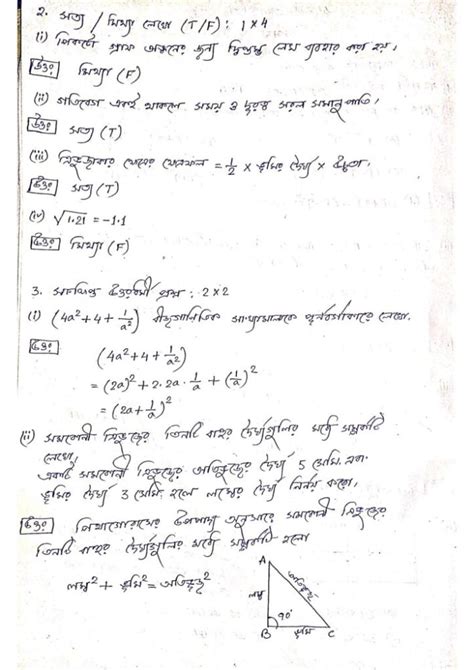 2. সত্য / মিথ্যা লেখো (T/F) : 1×4
(i) পিকটো গ্রাফ অঙ্কনের জন্য দ্বিস্তম্ভ লেখ ব্যবহার করা হয়।
উঃ মিথ্যা (F)
(ii) গতিবেগ একই থাকলে সময় ও দূরত্ব সরল সমানুপাতি।
উঃ সত্য (T)
(iii) ত্রিভুজাকার ক্ষেত্রের ক্ষেত্রফল = 1/2 × ভূমির দৈর্ঘ্য × উচ্চতা।
উঃ সত্য (T)
(iv) √1.21 = -1.1
উঃ মিথ্যা (F)
3. সংক্ষিপ্ত উত্তরধর্মী প্রশ্ন : 2×2
(i) (4a²+4+1/a²) বীজগাণিতিক সংখ্যামালাকে পূর্ণবর্গাকারে লেখো।
উঃ
(4a²+4+1/a²)
= (2a)²+2.2a.1/a+(1/a)²
= (2a+1/a)²
(ii) সমকোণী ত্রিভুজের তিনটি বাহুর দৈর্ঘ্যগুলির মধ্যে সম্পর্কটি
লেখো,
একটি সমকোণী ত্রিভুজের অতিভুজের দৈর্ঘ্য 5 সেমি. এবং
ভূমির দৈর্ঘ্য 3 সেমি. হলে লম্বের দৈর্ঘ্য নির্ণয় করো।
উঃ পিথাগোরাসের উপপাদ্য অনুসারে সমকোণী ত্রিভুজের
তিনটি বাহুর দৈর্ঘ্যগুলির মধ্যে সম্পর্কটি হলো
লম্ব² + ভূমি² = অতিভুজ²
A
লম্ব
অতিভুজ
90°
B ভূমি C